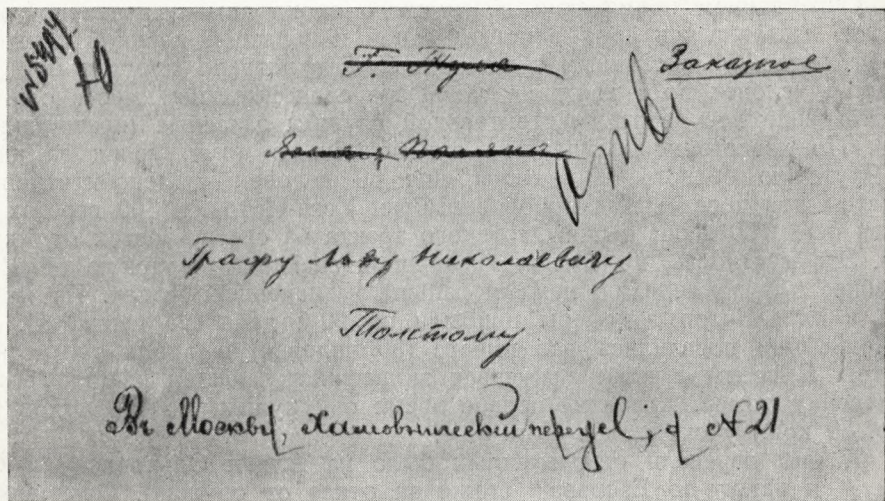 Г. Тула
Заказное
Ясная Поляна
Графу Льву Николаевичу
Толстому
Въ Москвѣ, Хамовническій переул, д № 21